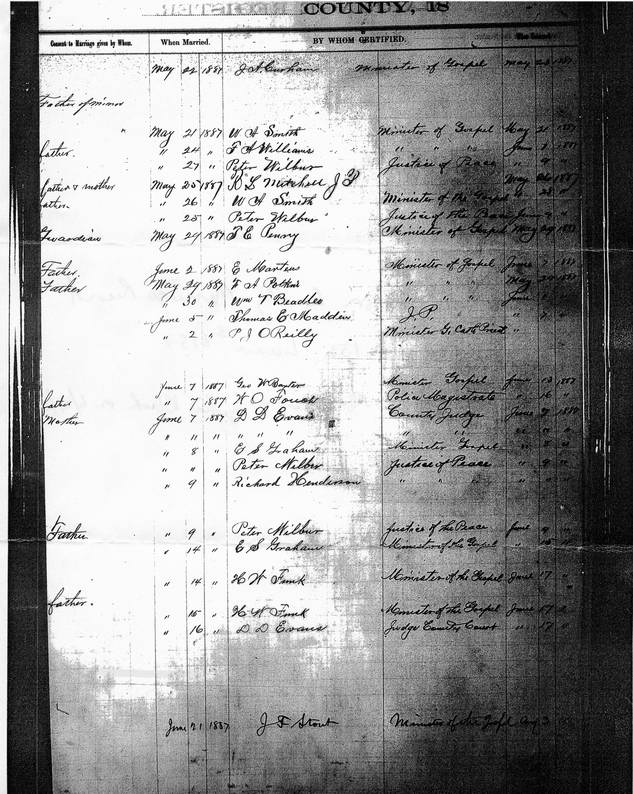 COUNTY, 18
Consent to Marriage given by Whom. When Married. BY WHOM CERTIFIED.
May 22 1887 J. A. Minister of Gospel May 23 1887
Father of minor
" May 21 1887 W A Smith Minister of Gospel May 21 1887
father. " 24 " F A Williams " " " June 1887
" 27 " Peter Wilbur Justice of Peace " 9 "
father & mother May 25 1887 R L Mitchell J P May 1887
" 26 " W A Smith Minister of the Gospel " 28 "
" 25 " Peter Wilbur Justice of the Peace June 9 "
Guardian May 29 1887 T. E. Penny Minister of Gospel May 29 1887
Father. June 2 1887 E Martens Minister of Gospel June 7 1887
Father May 29 1887 F A " " " May
" 30 " Wm T Beadles " " " June
June 5 " Thomas E Madden J. P. " 7 "
" 2 " P J O'Reilly Minister Priest "
June 7 1887 Geo W Minister Gospel June 13 1887
father " 7 1887 W O Fouch Police Magistrate " 16 "
Mother June 7 1887 D D Evans County Judge June
" " " " " "
" 8 " E S Graham Minister Gospel
" " " Peter Wilbur Justice of Peace " 9 "
" 9 " Richard Henderson " " " "
Father " 9 " Peter Wilbur Justice of the Peace June
" 14 " E S Graham Minister of the Gospel " 15
" 14 " H W Funk Minister of the Gospel June 17 "
father.
" 15 " H W Funk Minister of the Gospel June 17
" 16 " D D Evans Judge County Court " 17 "
June 21 1887 J F Stout Minister of the Aug 3